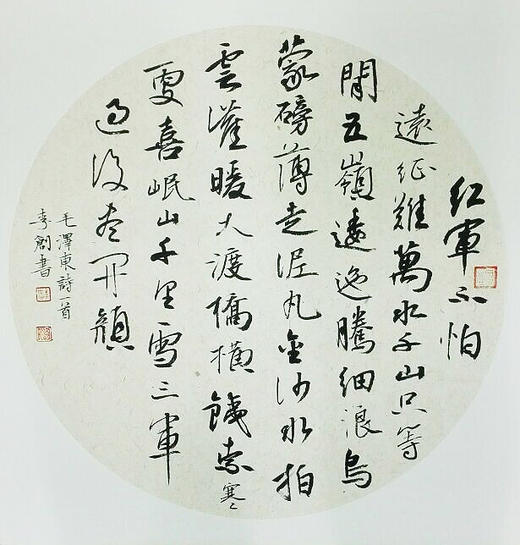 红軍不怕
遠征難萬水千山只等
閒五嶺逶迤騰細浪烏
蒙磅薄走泥丸金沙水拍
雲漄暖大渡橋横鐵索寒
更喜岷山千里雪三軍
過後尽开顔
毛澤東詩一首
李創書